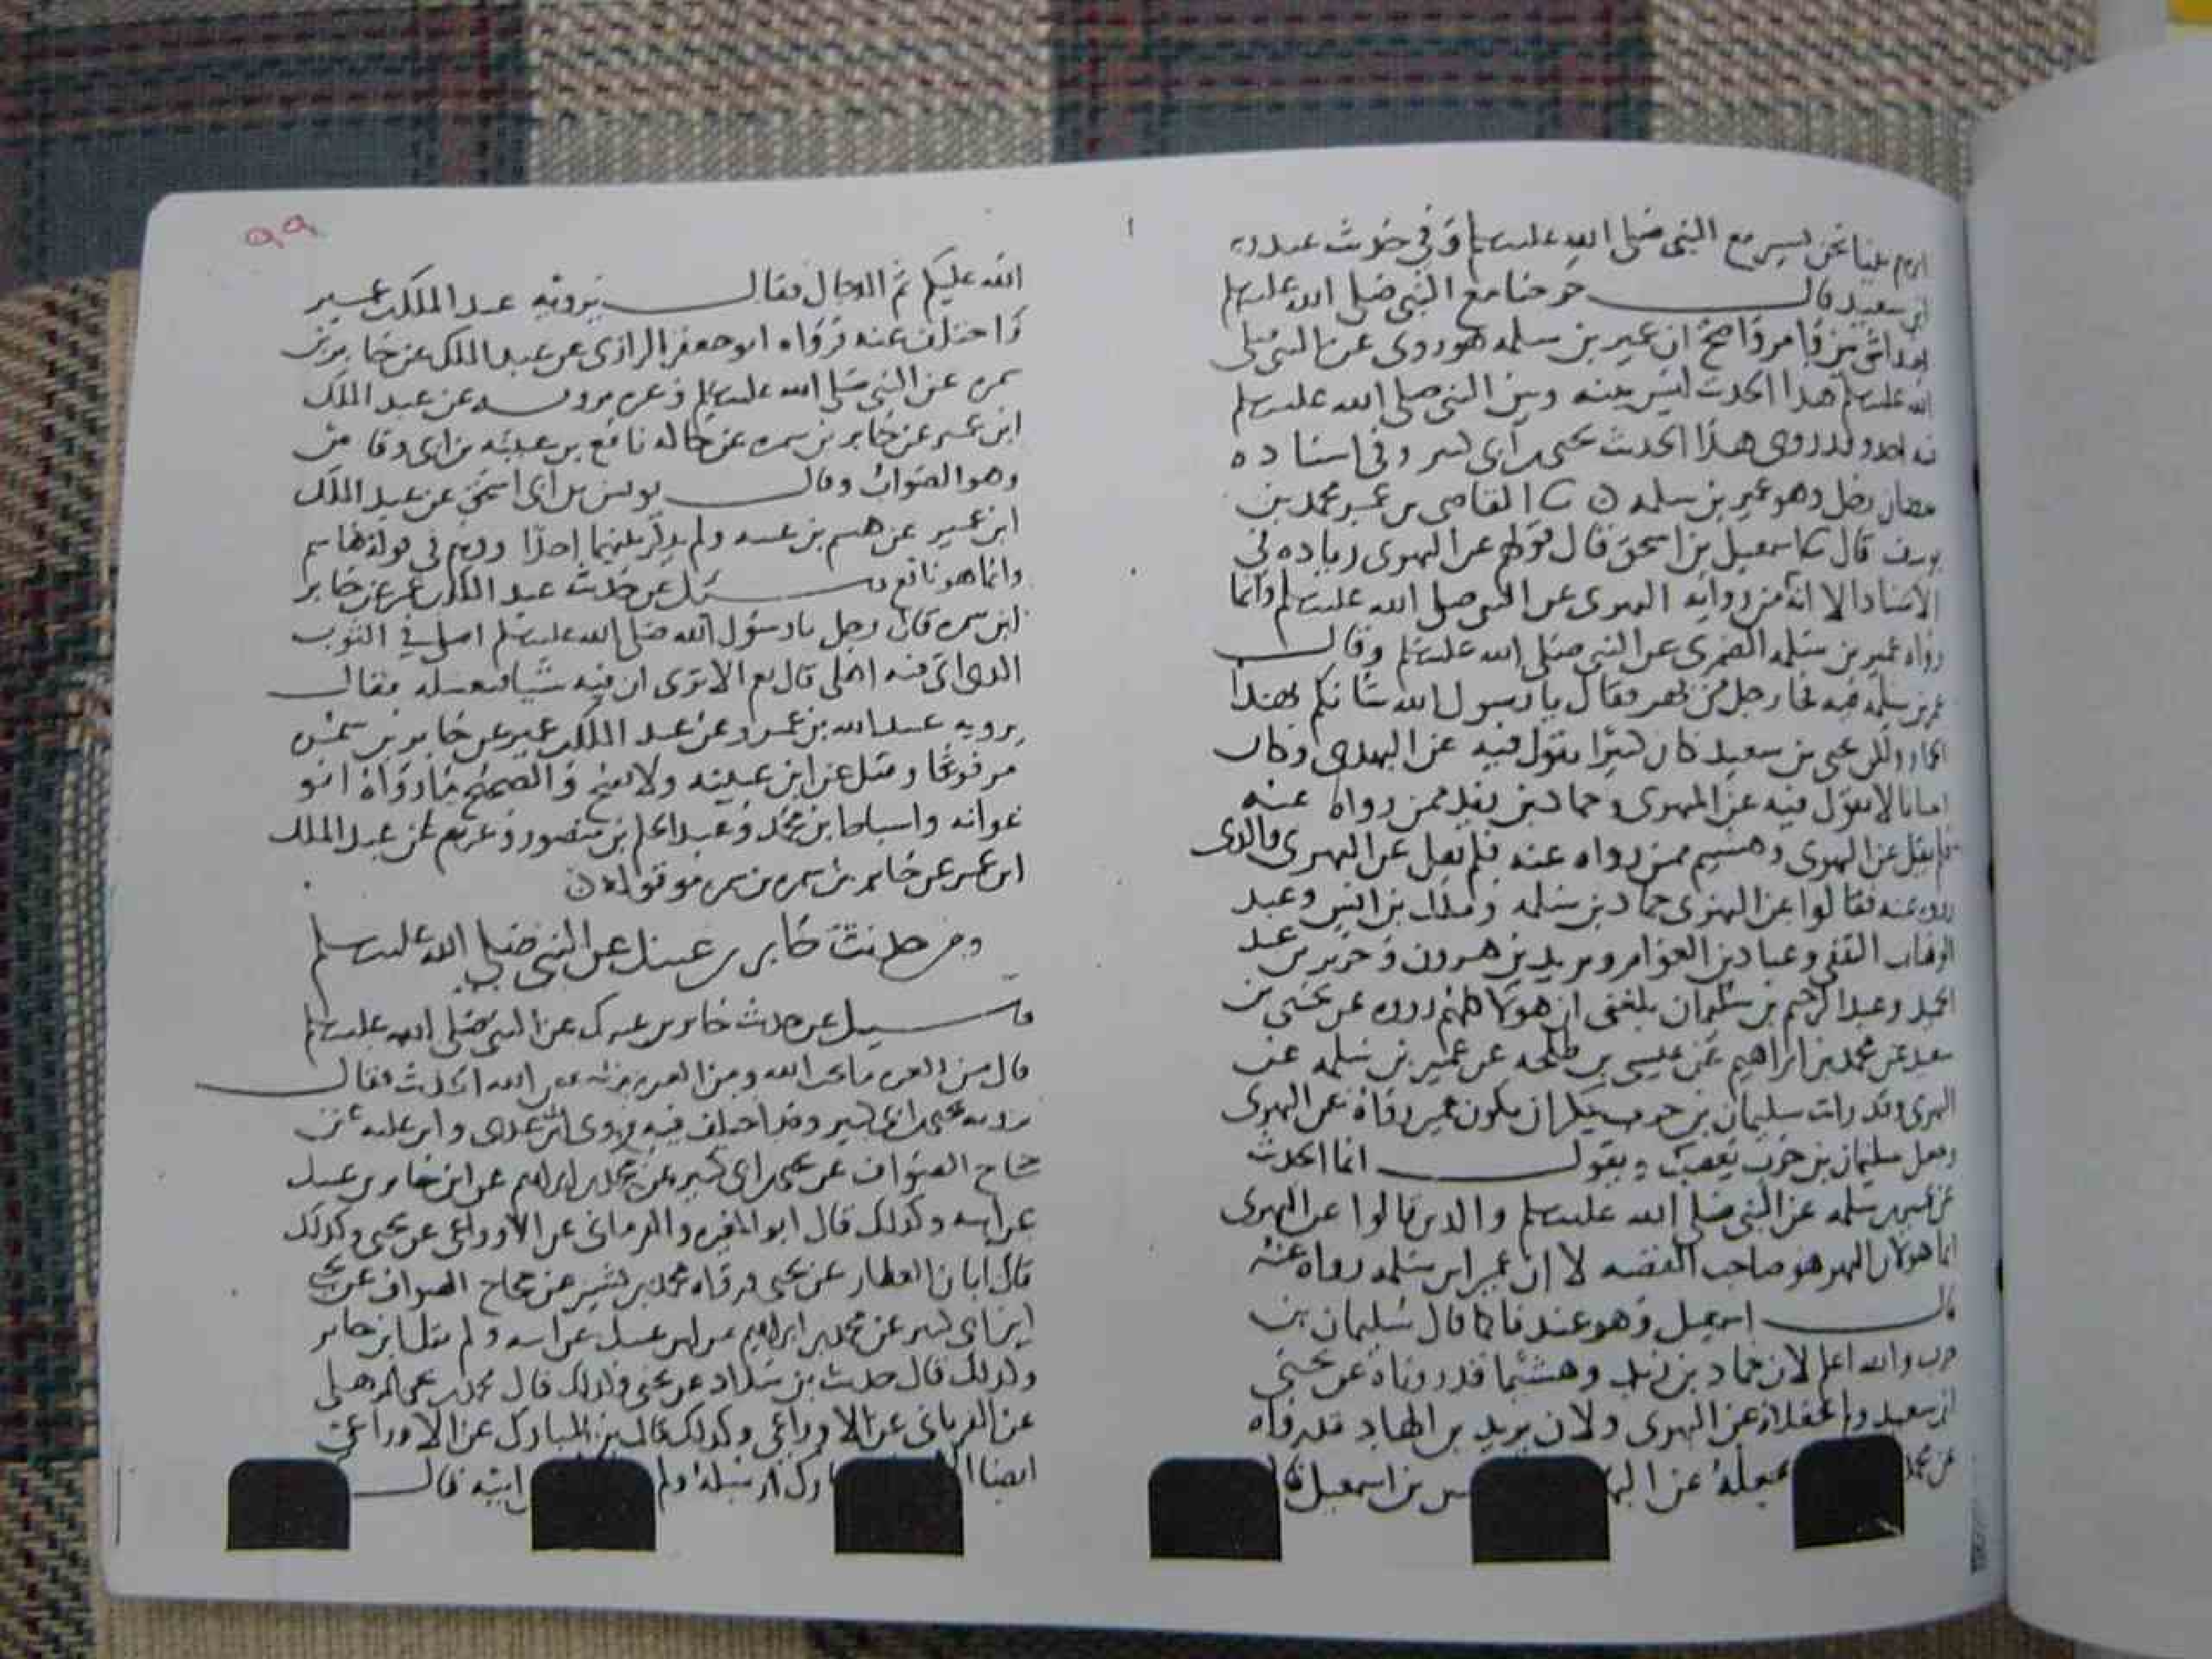 بينا نحن نسير مع النبي صلى الله عليه وسلم وفي حديث عبد ربه
ابن سعيد قال خرجنا مع النبي صلى الله عليه وسلم
ان عمير بن سلمه هو روى عن النبي صلى
الله عليه وسلم هذا الحديث ليس بينه وبين النبي صلى الله عليه وسلم
فيه احد وقد روى هذا الحديث يحيى بن ابي كثير وفي اسناده
رجل وهو عمير بن سلمه القاضي محمد بن
يوسف قال اسمعيل بن اسحق قال قولهم عن البهزى زياده في
الاسناد الا انه من روايه البهزى عن النبي صلى الله عليه وسلم وانما
رواه عمير بن سلمه الضمرى عن النبي صلى الله عليه وسلم وقال
عمير بن سلمه فيه فجا رجل من بهز فقال يا رسول الله شانكم بهذا
الحمار ولكن يحيى بن سعيد كان كثيرا يقول فيه عن البهزى وكان
احيانا لا يقول فيه عن البهزى وحماد بن زيد ممن رواه عنه
فلم يقل عن البهزى وهشيم ممن رواه عنه فلم يقل عن البهزى والذى
رووه عنه فقالوا عن البهزى حماد بن سلمه ومالك بن انس وعبد
الوهاب الثقفى وعباد بن العوام ويزيد بن هرون وجرير بن عبد
الحميد وعبد الرحيم بن سليمان بلغنى ان هولا كلهم رووه عن يحيى بن
سعيد عن محمد بن ابراهيم عن عيسى بن طلحه عن عمير بن سلمه عن
البهزى وقد رايت سليمان بن حرب ينكر ان يكون عمير رواه عن البهزى
وجعل سليمان بن حرب يغضب ويقول انما الحديث
عن عمير بن سلمه عن النبي صلى الله عليه وسلم والذين قالوا عن البهزى
انما هو لان البهزى هو صاحب القصه لا ان عمير ابن سلمه رواه عنه
قال اسمعيل وهو عندنا كما قال سليمان بن
حرب والله اعلم لان حماد بن زيد وهشيما قد روياه عن يحيى
ابن سعيد ولم يجعلاه عن البهزى ولان يزيد بن الهاد قد رواه
عن محمد يجعله عن بن اسمعيل
٩٩
الله عليكم ثم الدجال فقال يرويه عبد الملك بن عمير
واختلف عنه فرواه ابو جعفر الرازى عن عبد الملك عن جابر بن
سمره عن النبي صلى الله عليه وسلم وغيره يرويه عن عبد الملك
ابن عمير عن جابر بن سمره عن خاله نافع بن عتبه بن ابى وقاص
وهو الصواب وقال يونس بن ابى اسحق عن عبد الملك
ابن عمير عن هاشم بن عتبه ولم يذكر بينهما احدا ووهم فى قوله هاشم
وانما هو نافع وسئل عن حديث عبد الملك بن عمير عن جابر
ابن سمره قال رجل يا رسول الله صلى الله عليه وسلم اصلى فى الثوب
الذى اتى فيه اهلى قال نعم الا ترى ان فيه شيا فتغسله فقال
يرويه عبيد الله بن عمرو عن عبد الملك بن عمير عن جابر بن سمره
مرفوعا وقيل عن ابن عيينه ولا يصح والصحيح ما رواه ابو
عوانه واسباط بن محمد وعبد الحكم بن منصور وغيرهم عن عبد الملك
ابن عمير عن جابر بن سمره موقوفا
ومن حديث جابر بن عتيك عن النبي صلى الله عليه وسلم
وسئل عن حديث جابر بن عتيك عن النبي صلى الله عليه وسلم
قال من الغيره ما يحب الله ومن الغيره ما يبغض الله الحديث فقال
يرويه يحيى بن ابى كثير وقد اختلف فيه فروى ابن ابى عدى وابن عليه عن
حجاج الصواف عن يحيى بن ابى كثير عن محمد بن ابراهيم عن ابن جابر بن عتيك
عن ابيه وكذلك قال ابو المغيره والفريابى عن الاوزاعى عن يحيى وكذلك
قال ابان العطار عن يحيى ورواه محمد بن بشر عن حجاج الصواف عن يحيى
ابن ابى كثير عن محمد بن ابراهيم عن ابن عتيك عن ابيه ولم يقل ابن جابر
وكذلك قال حرب بن شداد عن يحيى وكذلك قال محمد بن يحيى الذهلى
عن الفريابى عن الاوزاعى وكذلك قال ابن المبارك عن الاوزاعى
ايضا ارسله ولم ابيه قال